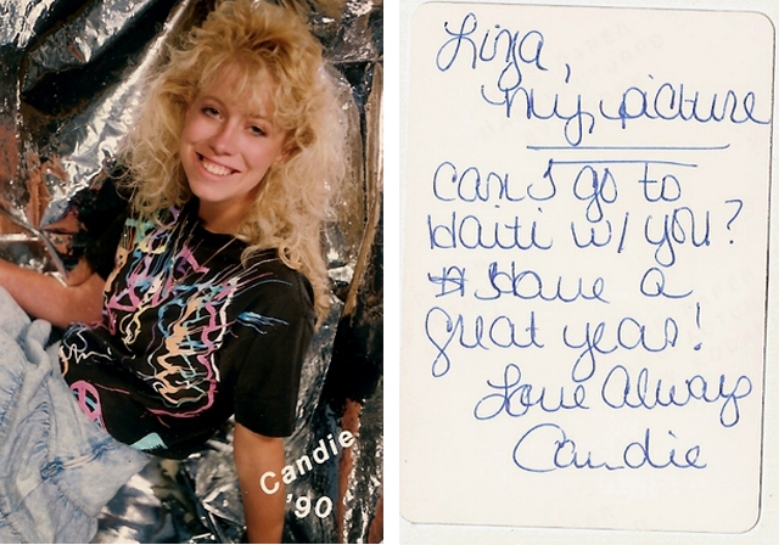 Candie
'90
Liza,
my, picture
can I go to
Haiti w/ you?
Have a
great year!
Love Always
Candie